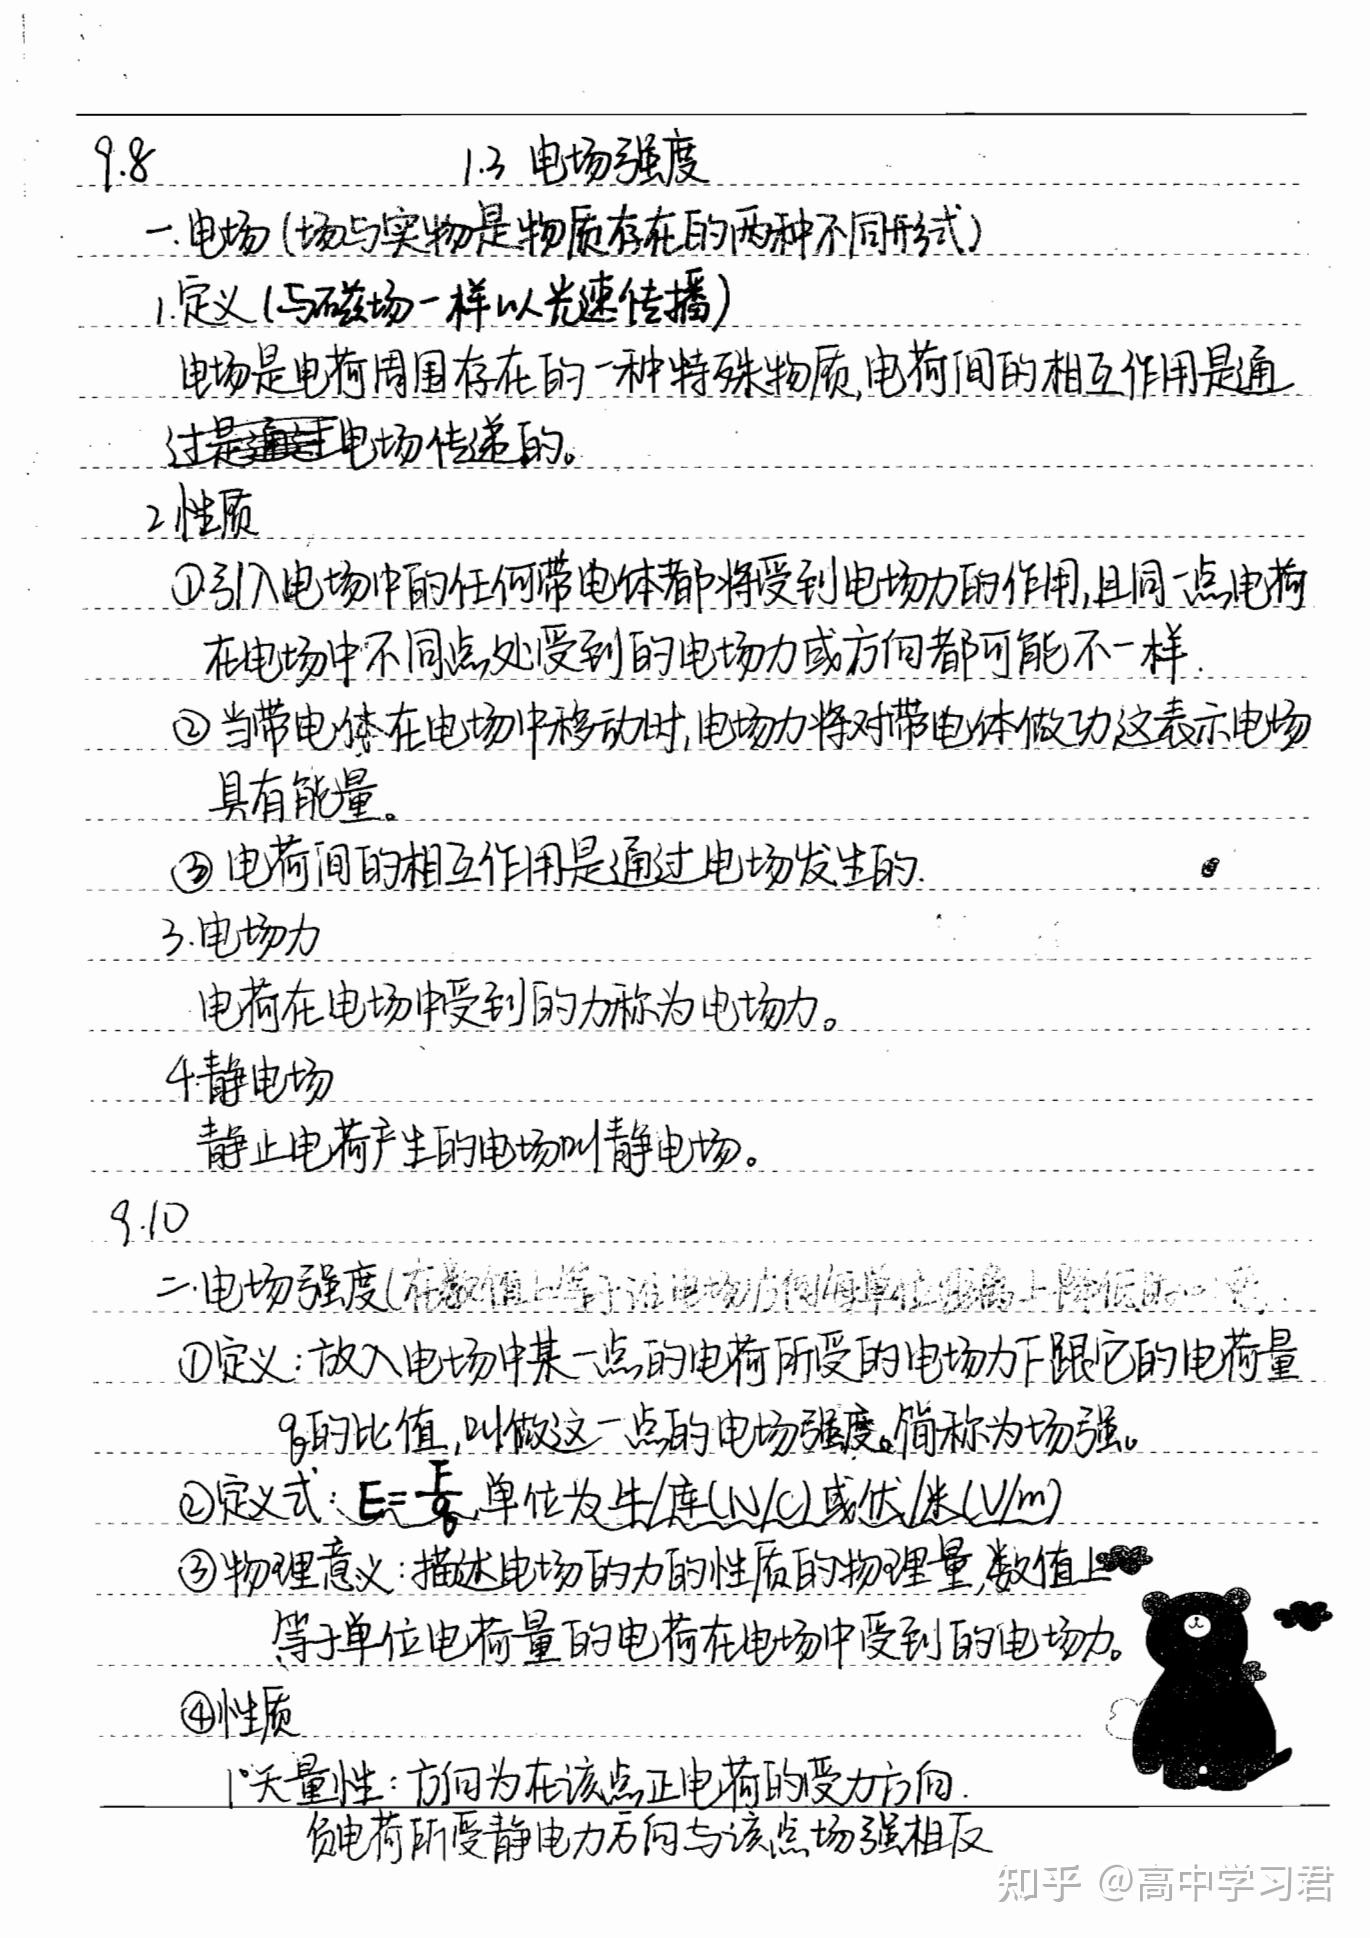 9.8
1.3 电场强度
一.电场(场与实物是物质存在的两种不同形式)
1.定义(与磁场一样以光速传播)
电场是电荷周围存在的一种特殊物质,电荷间的相互作用是通
过电场传递的。
2.性质
①引入电场中的任何带电体都将受到电场力的作用,且同一点电荷
在电场中不同点处受到的电场力或方向都可能不一样.
②当带电体在电场中移动时,电场力将对带电体做功,这表示电场
具有能量。
③电荷间的相互作用是通过电场发生的.
3.电场力
电荷在电场中受到的力称为电场力。
4.静电场
静止电荷产生的电场叫静电场。
9.10
二.电场强度(在数值上等于沿电场方向每单位距离上降低的
①定义:放入电场中某一点的电荷所受的电场力F跟它的电荷量
q₀的比值,叫做这一点的电场强度。简称为场强。
②定义式:E=F/q₀,单位为牛/库(N/C)或伏/米(V/m)
③物理意义:描述电场的力的性质的物理量,数值上
等于单位电荷量的电荷在电场中受到的电场力。
④性质
1°矢量性:方向为在该点正电荷的受力方向.
负电荷所受静电力方向与该点场强相反
知乎 @高中学习君